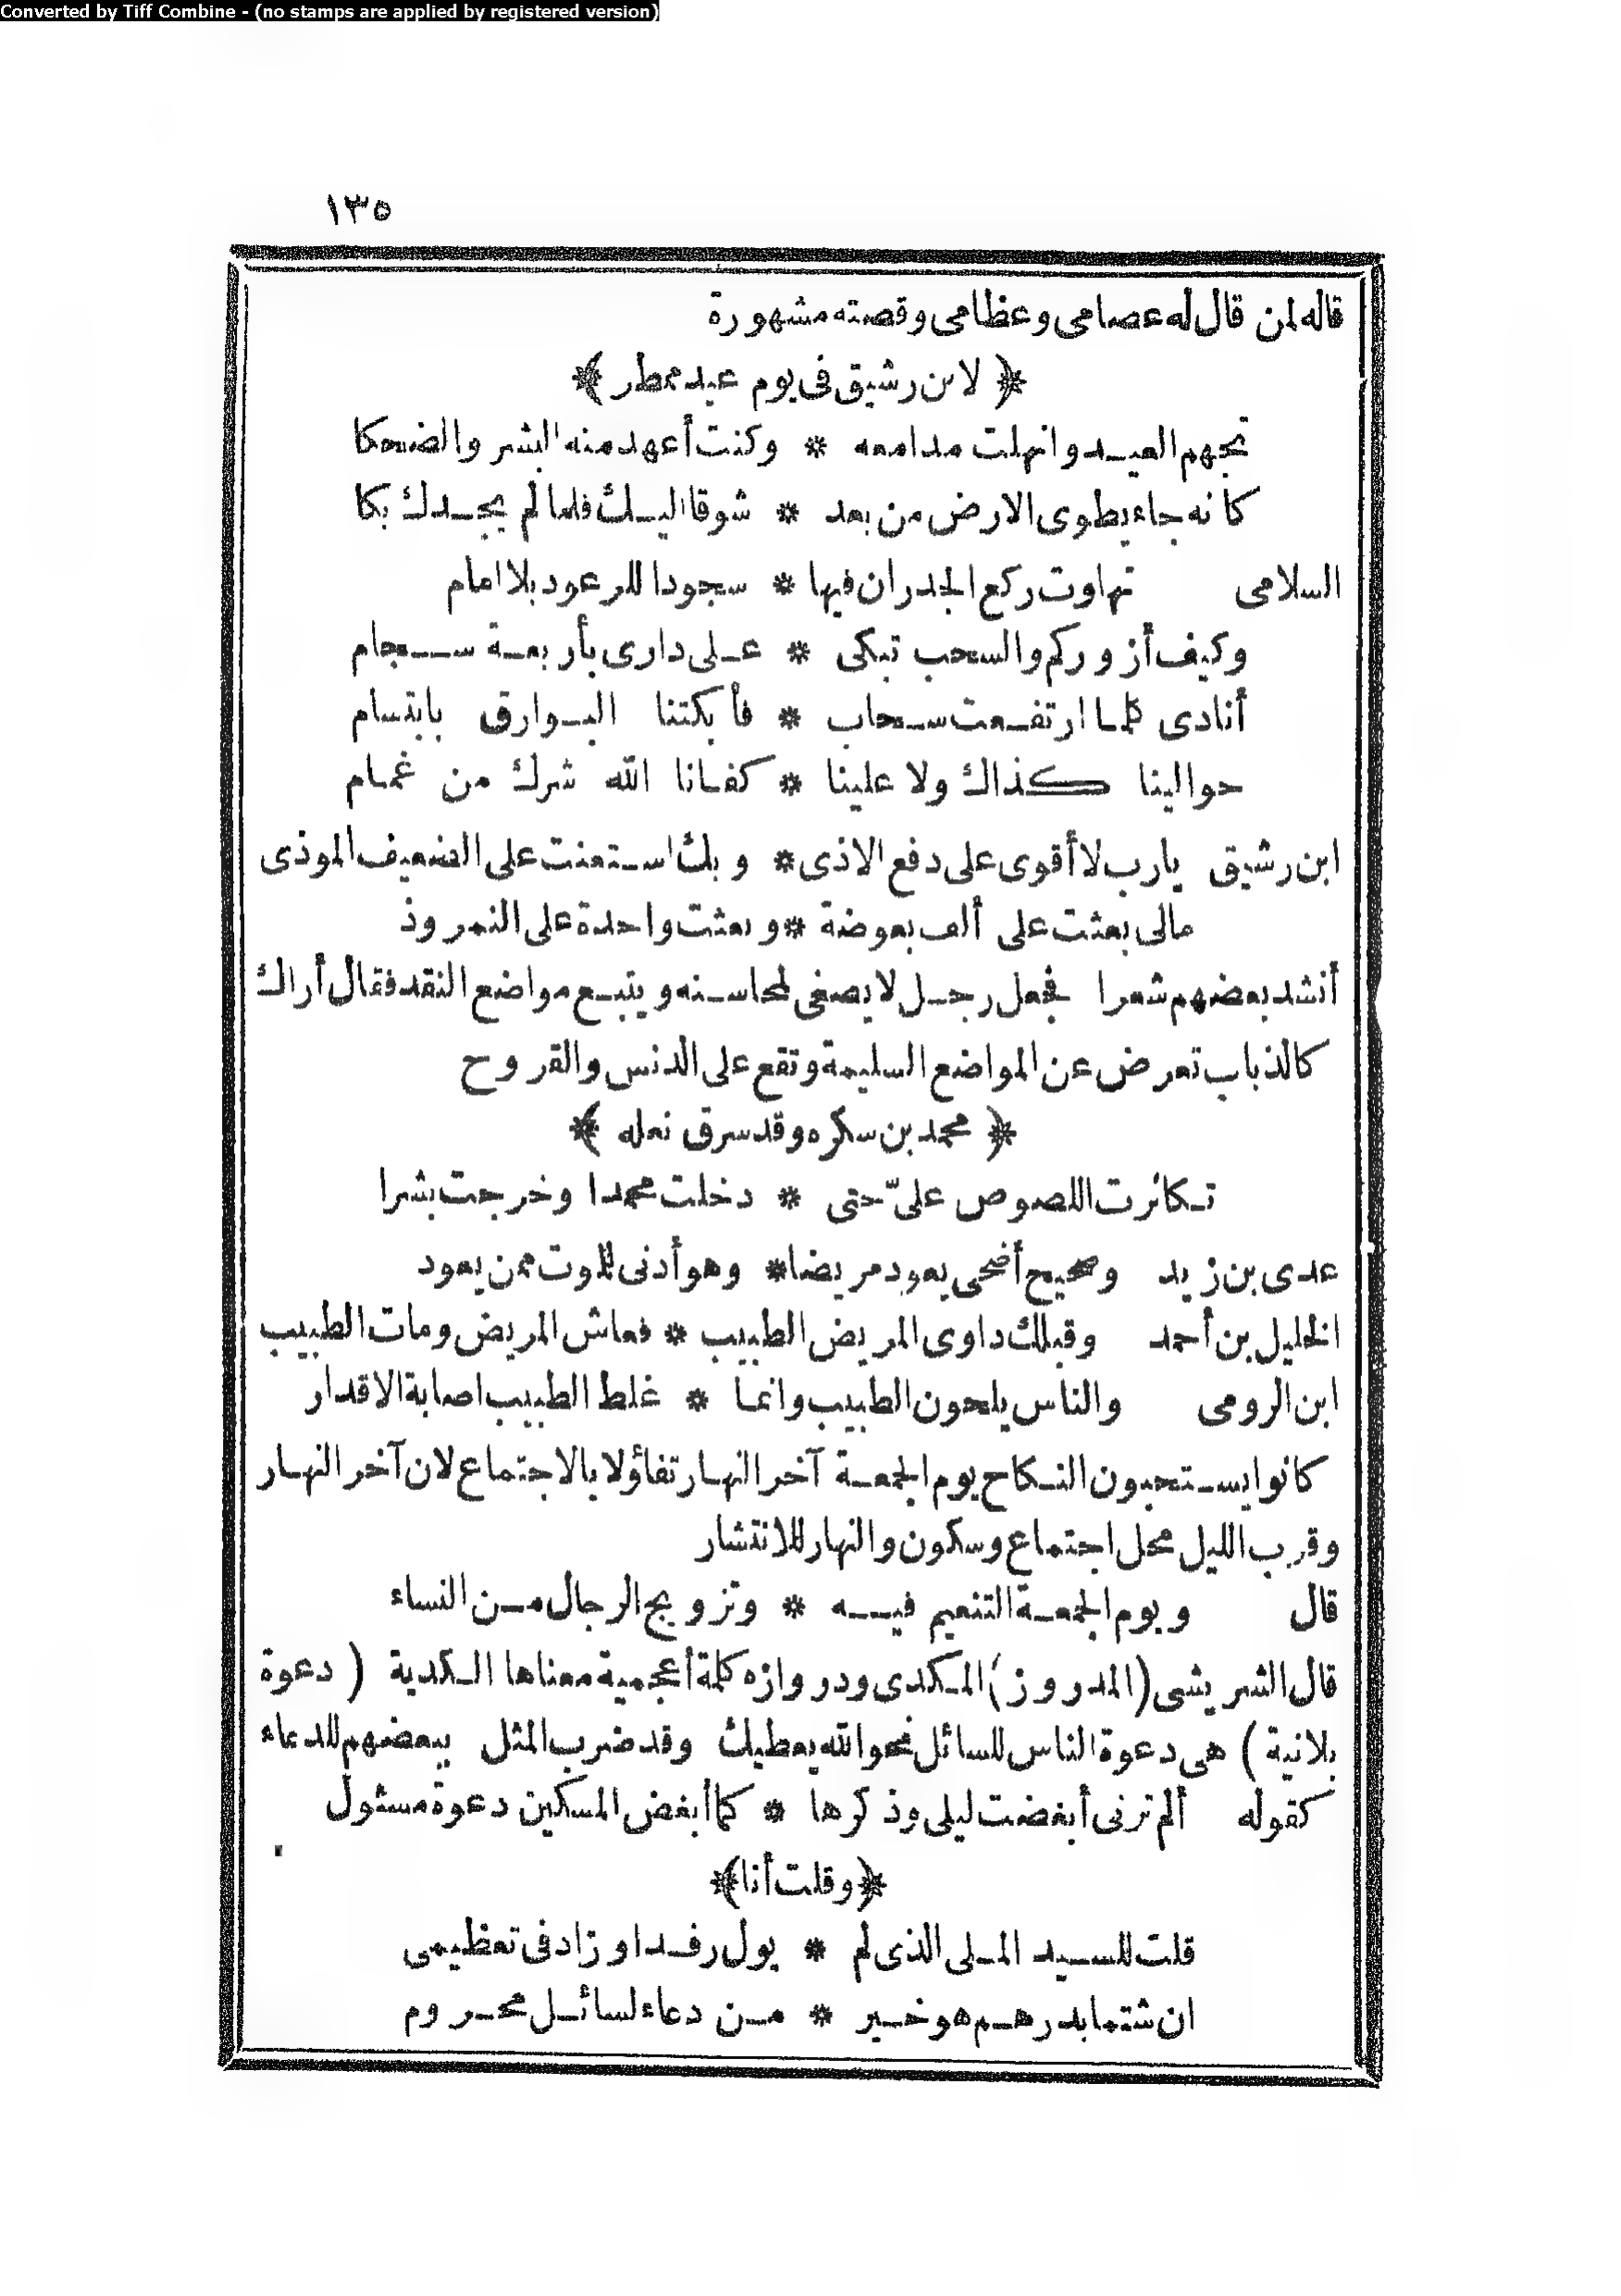 Converted by Tiff Combine - (no stamps are applied by registered version)
١٣٥
قاله لمن قال له عصامى وعظامى وقصته مشهورة
﴿ لابن رشيق فى يوم عيد ممطر ﴾
تجهم العيـد وانهلت مدامعه * وكنت أعهد منه البشر والضحكا
كانه جاء يطوى الارض من بعد * شوقا اليـك فلما لم يجـدك بكا
السلامى تهاوت ركع الجدران فيها * سجودا للرعود بلا امام
وكيف أزوركم والسحب تبكى * عـلى دارى بأربعـة سـجام
أنادى كلما ارتفـعت سـحاب * فأبكتنا البـوارق بابتسام
حوالينا كذاك ولا علينا * كفـانا الله شرك من غمـام
ابن رشيق يارب لا أقوى على دفع الاذى * وبك اسـتعنت على الضعيف الموذى
مالى بعثت على ألف بعوضة * وبعثت واحدة على النمروذ
أنشد بعضهم شعرا فجعل رجـل لا يصغى لمحاسـنه ويتبـع مواضع النقد فقال أراك
كالذباب تعرض عن المواضع السليمة وتقع على الدنس والقروح
﴿ محمد بن سكره وقد سرق نعله ﴾
تـكاثرت اللصوص علىّ حتى * دخلت محمدا وخرجت بشرا
عدى بن زيد وصحيح أضحى يعود مريضا * وهو أدنى للموت ممن يعود
الخليل بن أحمد وقبلك داوى المريض الطبيب * فعاش المريض ومات الطبيب
ابن الرومى والناس يلحون الطبيب وانما * غلط الطبيب اصابة الاقدار
كانوا يسـتحبون النـكاح يوم الجمعـة آخر النهـار تفاؤلا بالاجتماع لان آخر النهـار
وقرب الليل محل اجتماع وسكون والنهار للانتشار
قال ويوم الجمعـة التنعيم فيـه * وتزويج الرجال مـن النساء
قال الشريشى (المدروز) المـكدى ودروازه كلمة أعجمية معناها الـكدية ( دعوة
بلانية ) هى دعوة الناس للسائل نحو الله يعطيك وقد ضرب المثل ببعضهم للدعاء
كقوله ألم ترنى أبغضت ليلى وذكرها * كما أبغض المسكين دعوة مسئول
﴿ وقلت أنا ﴾
قلت للسـيد المـلى الذى لم * يول رفـدا وزاد فى تعظيمى
ان شتما بدرهـم هو خـير * مـن دعاء لسائـل محـروم